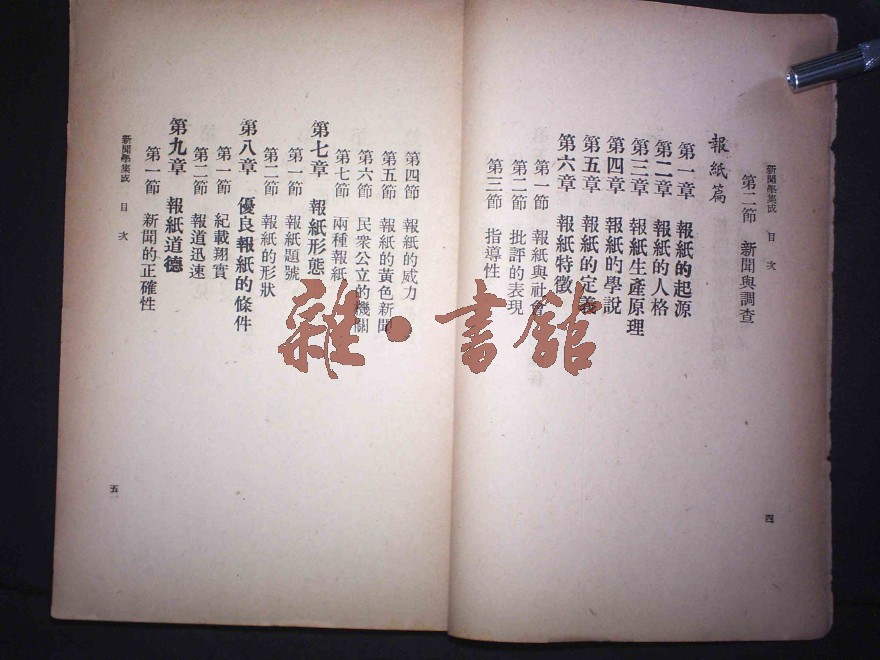 新聞學集成　目次
第二節　新聞與調查
報紙篇
第一章　報紙的起源
第二章　報紙的人格
第三章　報紙生產原理
第四章　報紙的學說
第五章　報紙的定義
第六章　報紙特徵
第一節　報紙與社會
第二節　批評的表現
第三節　指導性
四
第四節　報紙的威力
第五節　報紙的黃色新聞
第六節　民衆公立的機關
第七節　兩種報紙
第七章　報紙形態
第一節　報紙題號
第二節　報紙的形狀
第八章　優良報紙的條件
第一節　紀載翔實
第二節　報道迅速
第九章　報紙道德
第一節　新聞的正確性
新聞學集成　目次
五
雜·書館